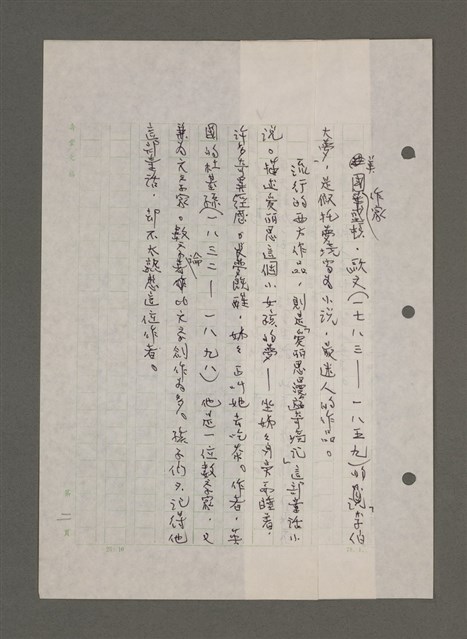 美國作家歐文(一七八三——一八五九)的「李伯
大夢」,是假托夢境寫的小說,最迷人的作品。
流行的西方作品,則是「愛麗思漫遊奇境記」這部童話小
說。描述愛麗思這個小女孩的夢——坐姊々身旁而睡著,
許多奇異經歷。夢既醒,姊々正叫她去吃茶。作者,英
國的杜基孫(一八三二——一八九八)他是一位數學家,又
兼為文學家。數學論著比文學創作為多。孩子們只記得他
這部童話,却不大認想這位作者。